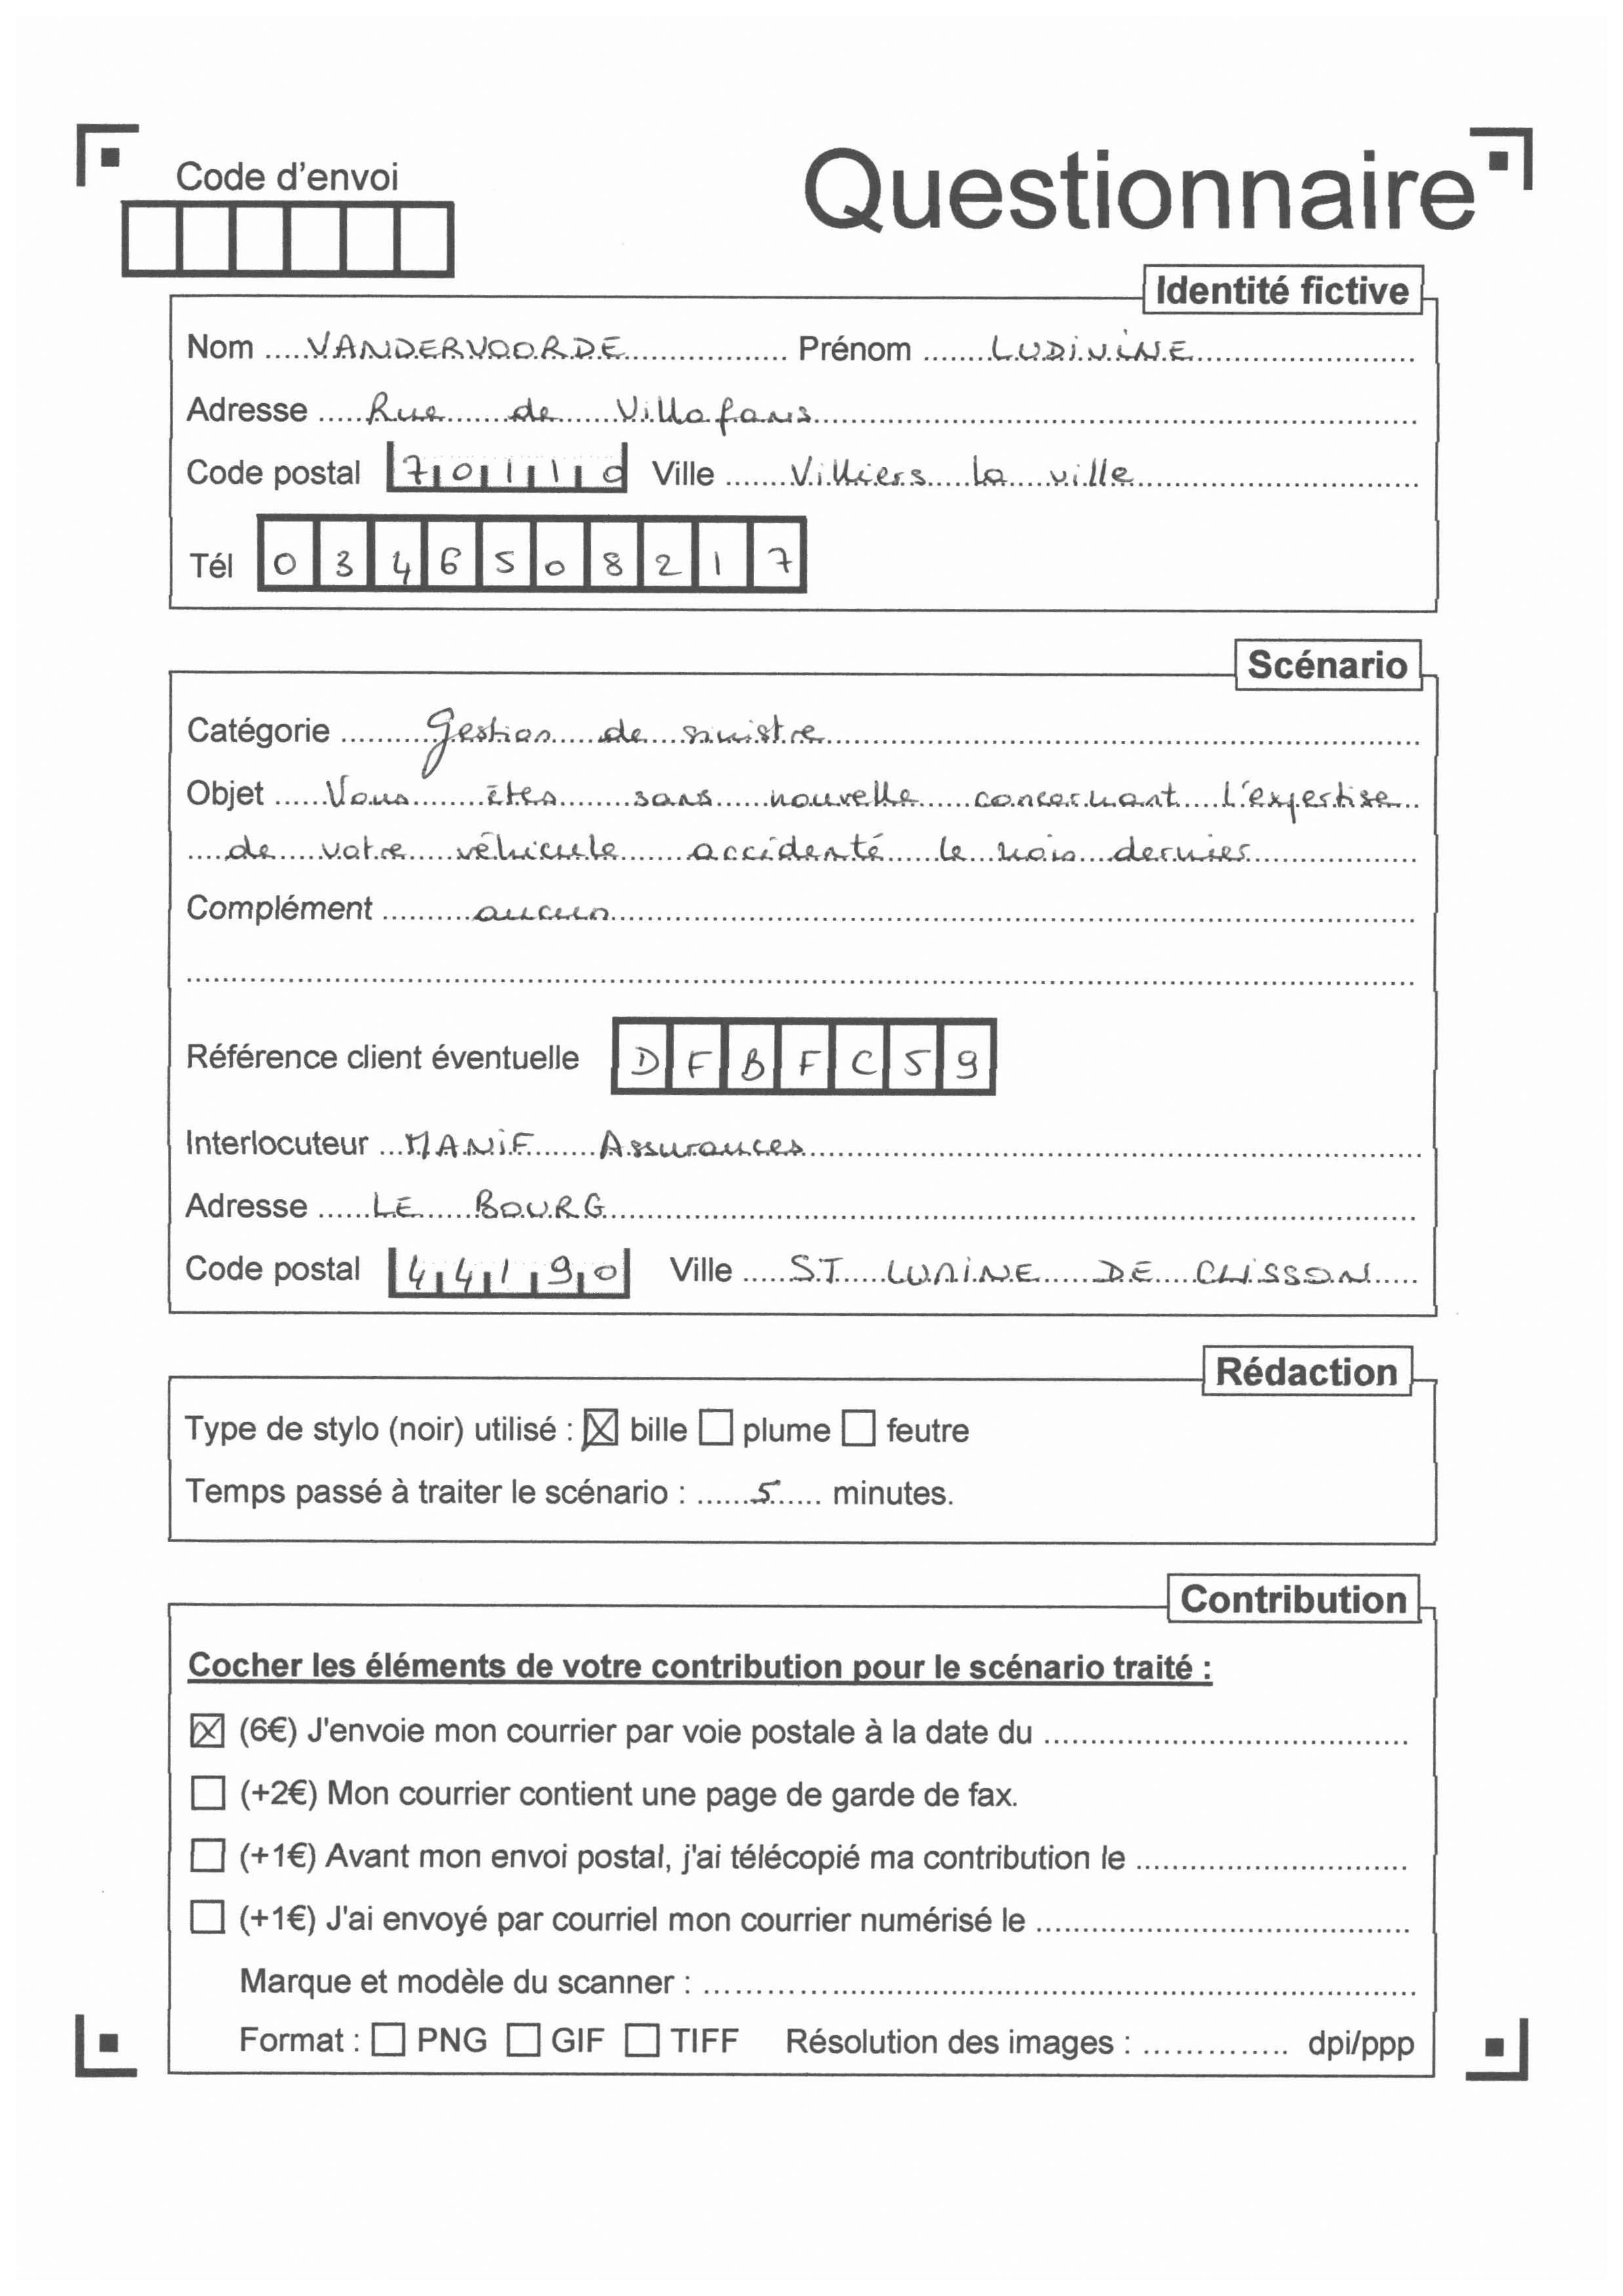 Code d'envoi
Questionnaire
Identité fictive
Nom VANDERVOORDE Prénom LUDIVINE
Adresse Rue de Villafans
Code postal 70110 Ville Villiers la ville
Tél 0346508217
Scénario
Catégorie Gestion de sinistre
Objet Vous êtes sans nouvelle concernant l'expertise
de votre véhicule accidenté le mois dernier
Complément aucun
Référence client éventuelle DFBFC59
Interlocuteur MANIF Assurances
Adresse LE BOURG
Code postal 44190 Ville ST LUMINE DE CLISSON
Rédaction
Type de stylo (noir) utilisé : ☒ bille ☐ plume ☐ feutre
Temps passé à traiter le scénario : 5 minutes.
Contribution
Cocher les éléments de votre contribution pour le scénario traité :
☒ (6€) J'envoie mon courrier par voie postale à la date du
☐ (+2€) Mon courrier contient une page de garde de fax.
☐ (+1€) Avant mon envoi postal, j'ai télécopié ma contribution le
☐ (+1€) J'ai envoyé par courriel mon courrier numérisé le
Marque et modèle du scanner :
Format : ☐ PNG ☐ GIF ☐ TIFF Résolution des images : dpi/ppp